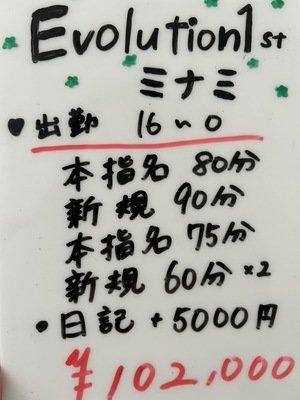 Evolution1st
ミナミ
♥出勤 16~0
本指名 80分
新規 90分
本指名 75分
新規 60分×2
•日記 + 5000円
¥102,000